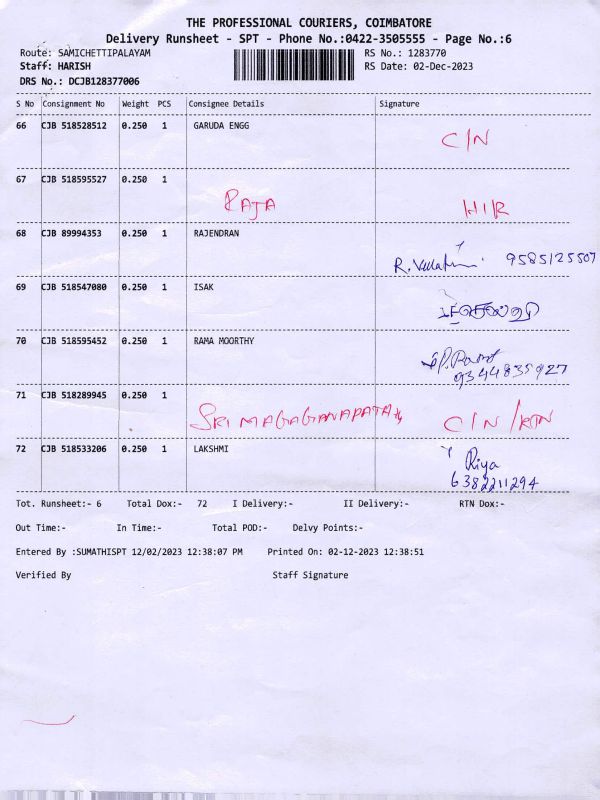 THE PROFESSIONAL COURIERS, COIMBATORE
Delivery Runsheet - SPT - Phone No.:0422-3505555 - Page No.:6
Route: SAMICHETTIPALAYAM RS No.: 1283770
Staff: HARISH RS Date: 02-Dec-2023
DRS No.: DCJB128377006
S No Consignment No Weight PCS Consignee Details Signature
66 CJB 518528512 0.250 1 GARUDA ENGG
C/N
67 CJB 518595527 0.250 1
RAJA HIR
68 CJB 89994353 0.250 1 RAJENDRAN
R. 9585125507
69 CJB 518547080 0.250 1 ISAK
70 CJB 518595452 0.250 1 RAMA MOORTHY
9344835927
71 CJB 518289945 0.250 1
SRI MAGAGANAPATAty C/N/RTN
72 CJB 518533206 0.250 1 LAKSHMI
Riya
6382211294
Tot. Runsheet:- 6 Total Dox:- 72 I Delivery:- II Delivery:- RTN Dox:-
Out Time:- In Time:- Total POD:- Delvy Points:-
Entered By :SUMATHISPT 12/02/2023 12:38:07 PM Printed On: 02-12-2023 12:38:51
Verified By Staff Signature